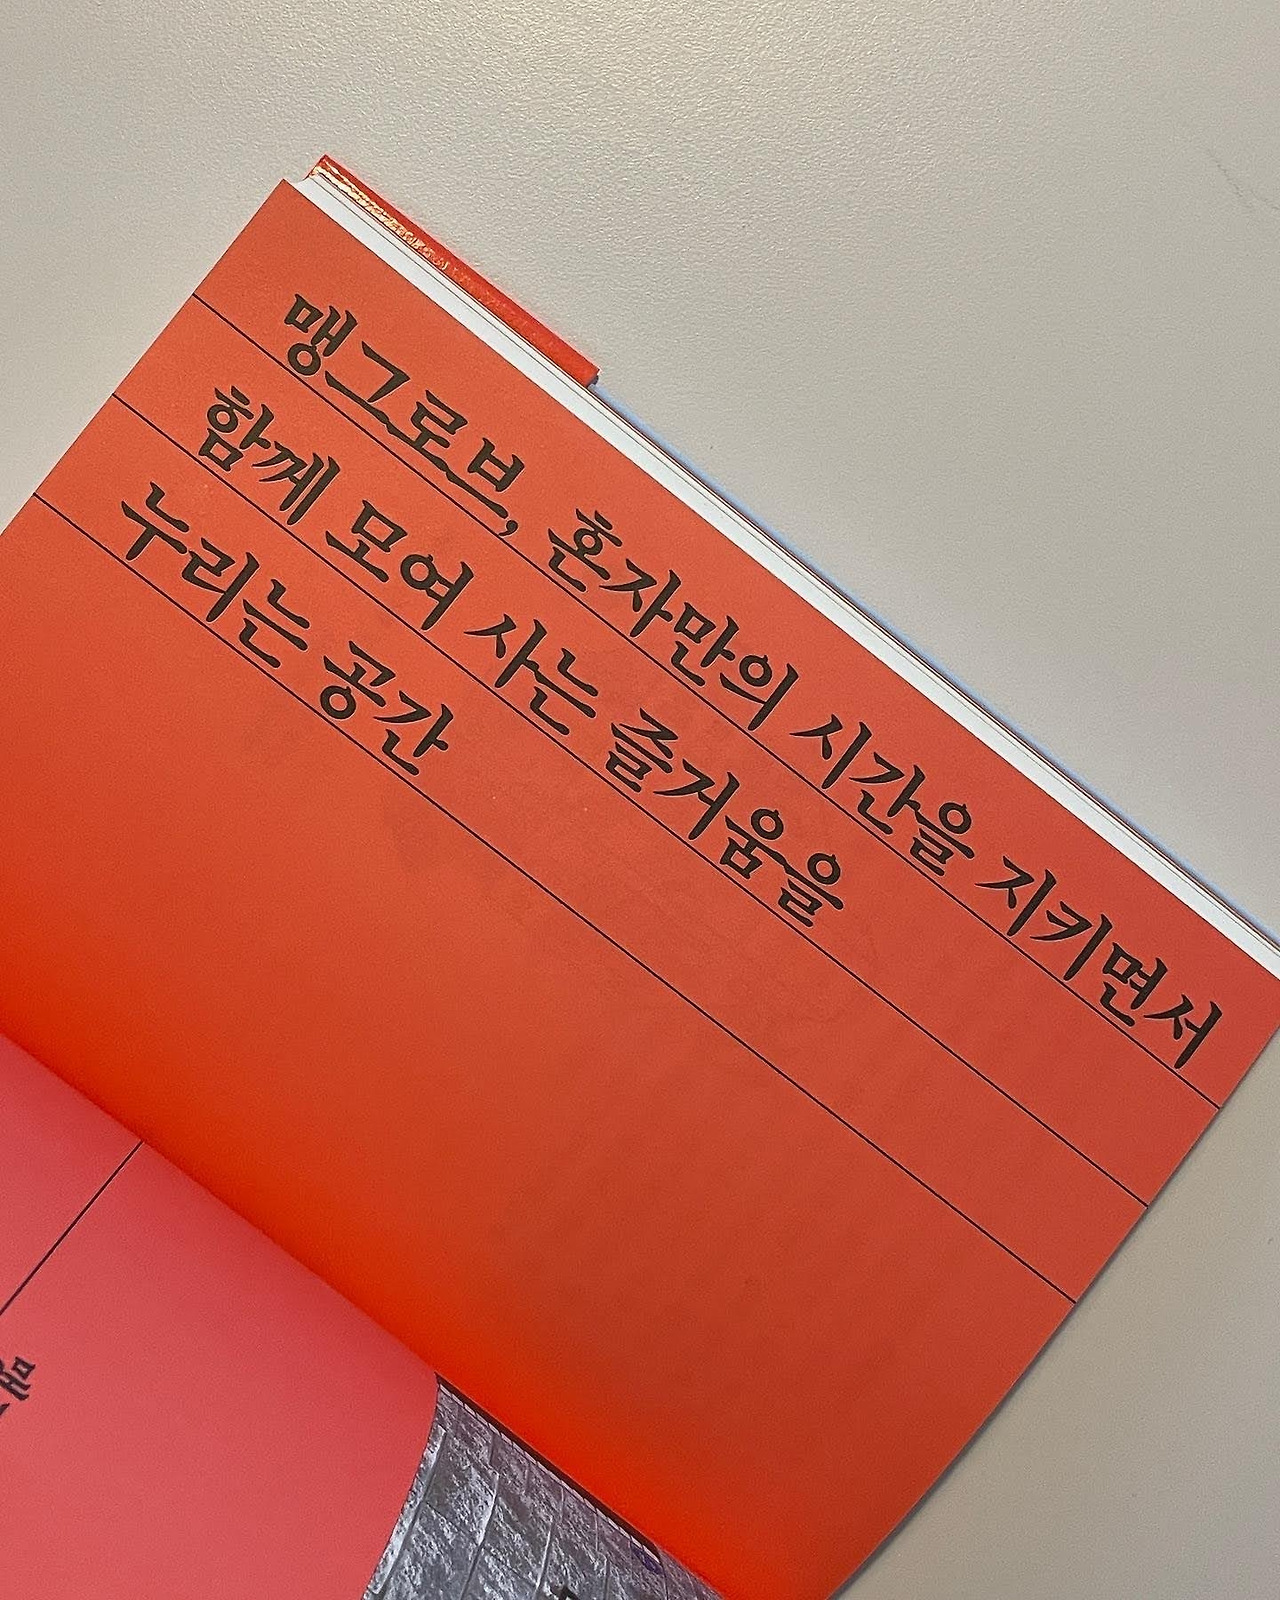 맹그로브, 혼자만의 시간을 지키면서
함께 모여 사는 즐거움을
누리는 공간